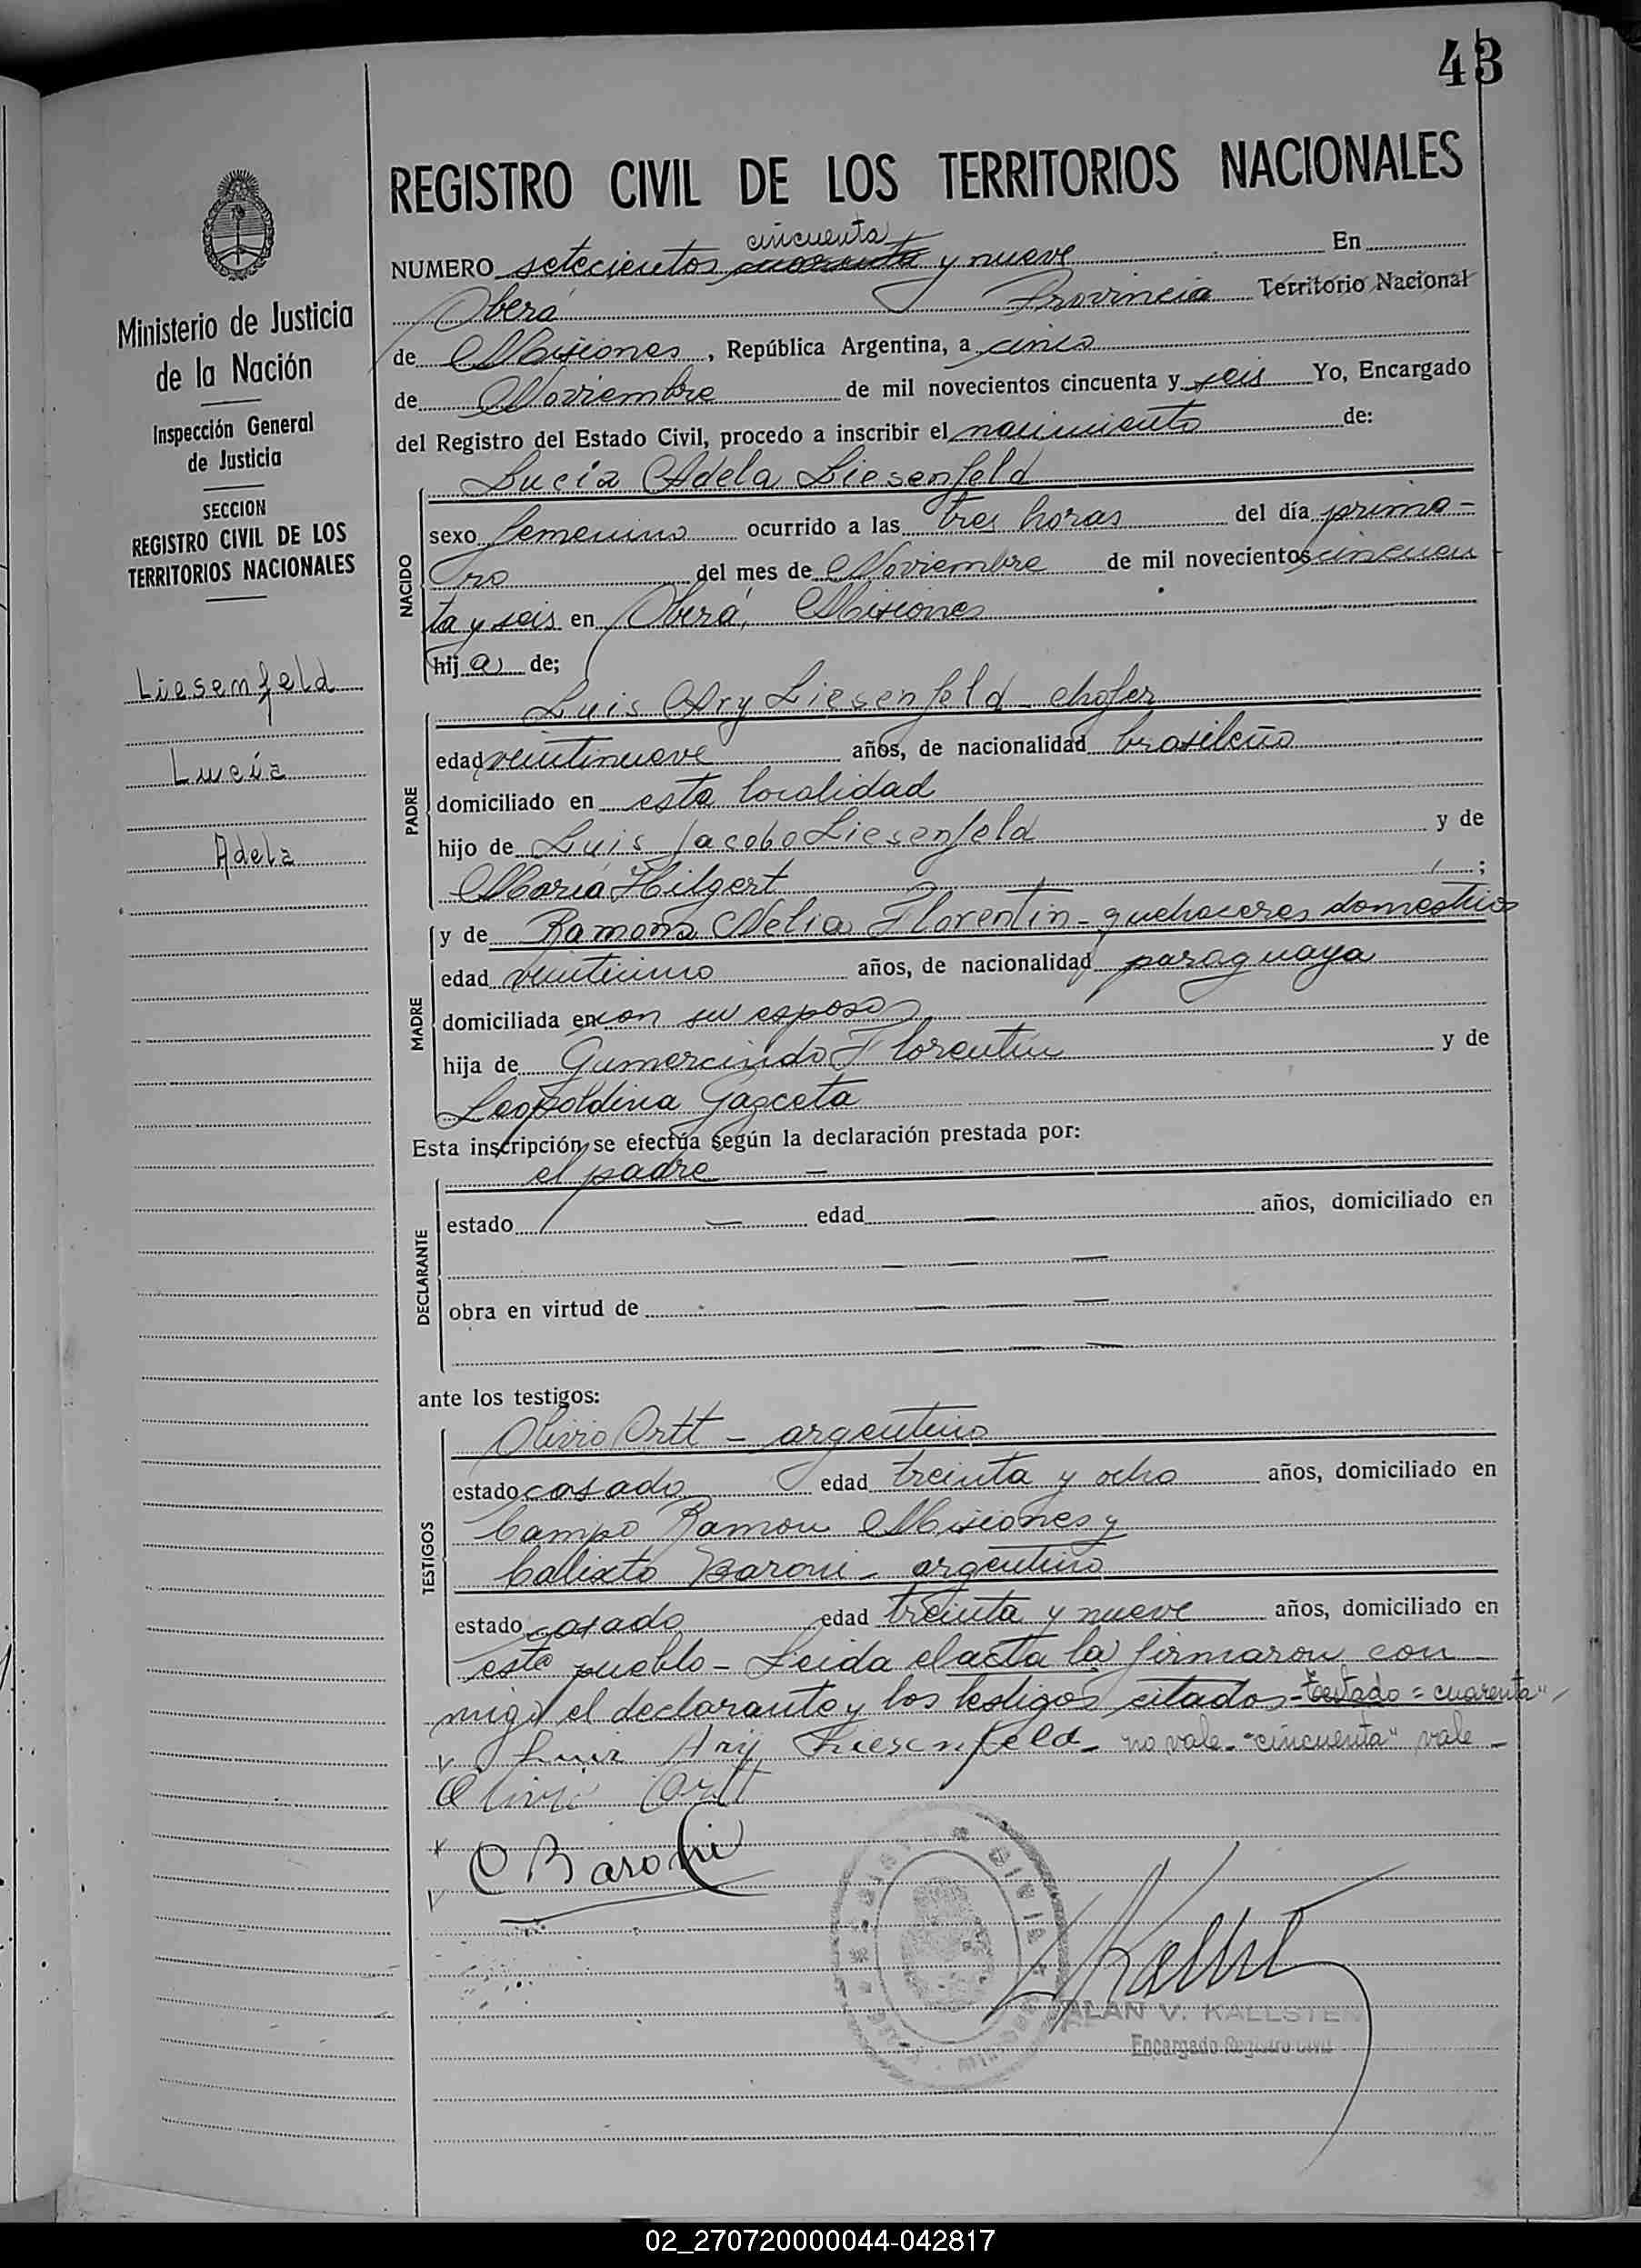 43
REGISTRO CIVIL DE LOS TERRITORIOS NACIONALES
cincuenta
NUMERO setecientos cuarenta y nueve En
Oberá Provincia Territorio Nacional
de Misiones, República Argentina, a cinco
de Noviembre de mil novecientos cincuenta y seis Yo, Encargado
del Registro del Estado Civil, procedo a inscribir el nacimiento de:
Ministerio de Justicia
de la Nación
Inspección General
de Justicia
SECCION
REGISTRO CIVIL DE LOS
TERRITORIOS NACIONALES
Liesenfeld
Lucía
Adela
NACIDO
Lucía Adela Liesenfeld
sexo femenino ocurrido a las tres horas del día prime-
ro del mes de Noviembre de mil novecientos cincuen
ta y seis en Oberá, Misiones
hija de;
PADRE
Luis Ary Liesenfeld - chofer
edad veintinueve años, de nacionalidad brasileño
domiciliado en esta localidad
hijo de Luis Jacobo Liesenfeld y de
María Hilgert ;
MADRE
y de Ramona Nelia Florentin - quehaceres domesticos
edad años, de nacionalidad paraguaya
domiciliada en con su esposo
hija de Gumercindo Florentin y de
Leopoldina Gazceta
Esta inscripción se efectúa según la declaración prestada por:
DECLARANTE
el padre —
estado — edad — años, domiciliado en
— — —
obra en virtud de — — —
— — —
ante los testigos:
TESTIGOS
Olivio Ortt - argentino
estado casado edad treinta y ocho años, domiciliado en
Campo Ramon Misiones y
Calixto Baroni - argentino
estado casado edad treinta y nueve años, domiciliado en
este pueblo - Leida el acta la firmaron con
migo el declarante y los testigos citados - Testado = cuarenta"
Luis Ary Liesenfeld - no vale - "cincuenta" vale -
Olivio Ortt
C Baroni
ALAN V. KALLSTEN
Encargado Registro Civil
02_270720000044-042817